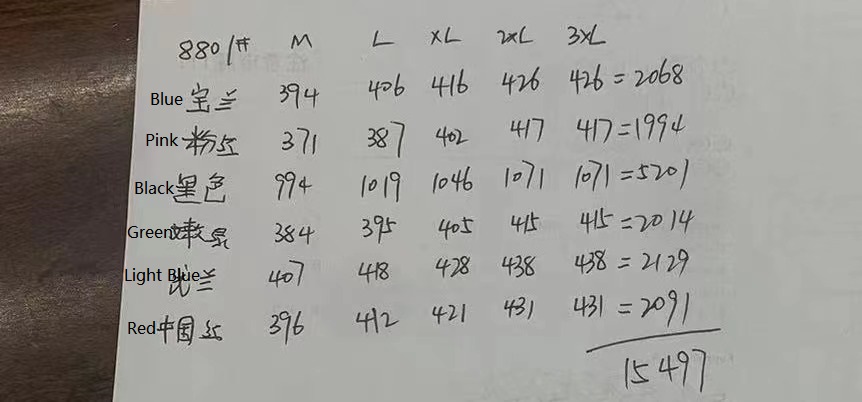 8801# M L XL 2XL 3XL
Blue 宝兰 394 406 416 426 426=2068
Pink 粉红 371 387 402 417 417=1994
Black 黑色 994 1019 1046 1071 1071=5201
Green 384 395 405 415 415=2014
Light Blue 兰 407 418 428 438 438=2129
Red 中国红 396 412 421 431 431=2091
15497